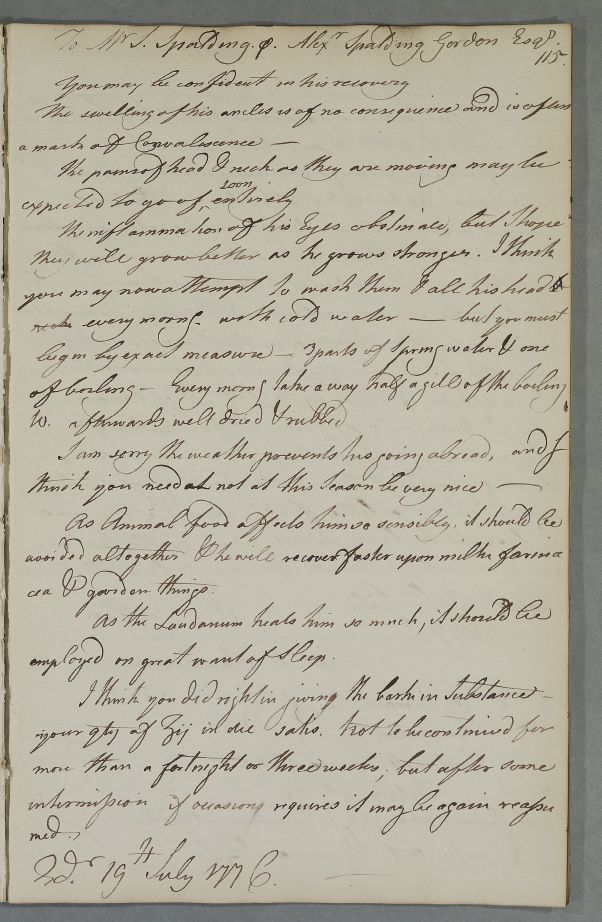 To Mr. S. Spalding. p. Alexr Spalding Gordon Esqr.
115.
You may be confident in his recovery
The swelling of his ancles is of no consequence and is often
a mark of Convalescence —
The pains of head & neck as they are moving may be
expected to go of soon entirely
The inflammation of his Eyes obstinate, but I hope
they will grow better as he grows stronger. I think
you may now attempt to wash them & all his head &
necke every morng. with cold water — but you must
begin by exact measure — 3 parts of Spring water & one
of boiling — Every morng take away half a gill of the boiling
W. afterwards well dried & rubbed
I am sorry the weather prevents his going abroad, and I
think you need not at this Season be very nice —
As Animal food affects him so sensibly, it should be
avoided altogether & he will recover faster upon milk farina
cea & garden things.
As the Laudanum heats him so much, it should be
employed on great want of Sleep.
I think you did right in giving the bark in Substance —
your qty of Zij in die satis. Not to be continued for
more than a fortnight or three weeks, but after some
intermission if occasiong requires it may be again reassu
med.,
2d.r 19th July 1776.